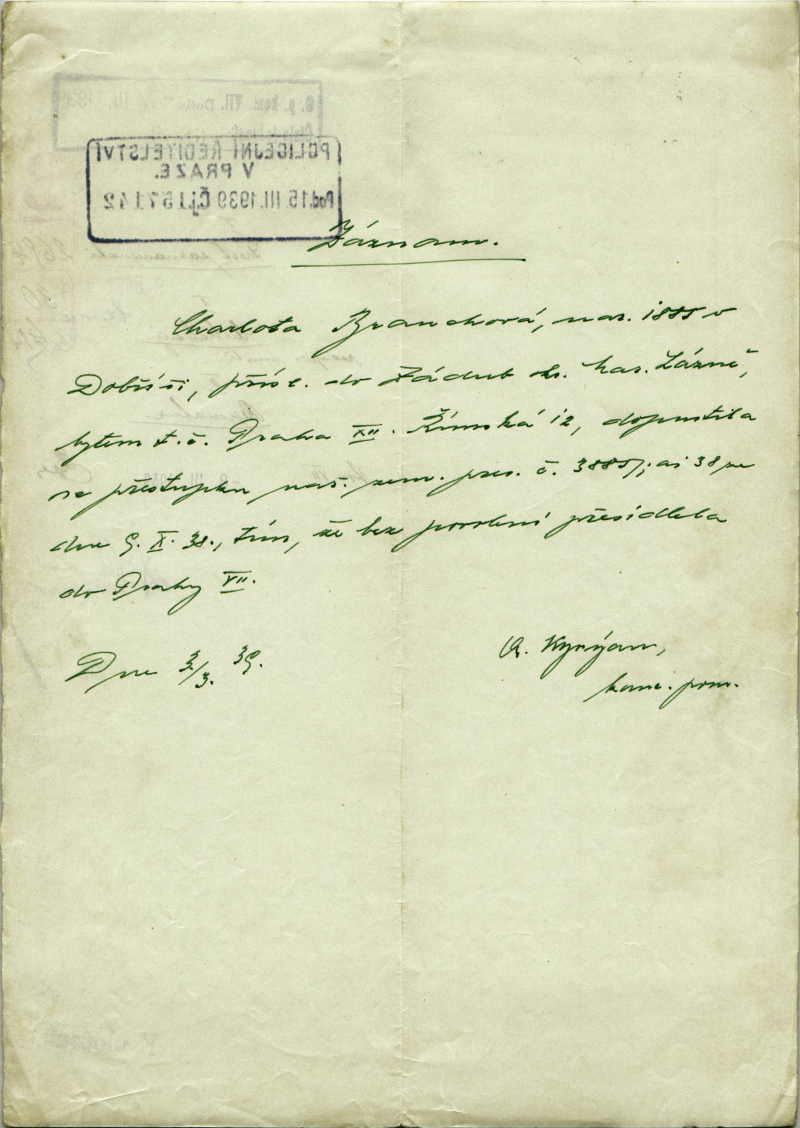 POLICEJNÍ ŘEDITELSTVÍ
V PRAZE.
Pod. 15. III. 1939 Čj. 157142
Záznam.
Charlota Brandová, nar. 1885 v
Dobříši, přísl. do Zádub okr. Mar. Lázně,
bytem t. č. Praha XII. Římská 12, dopustila
se přestupku nař. zem. pres. č. 3885/ 38 ze
dne 9. X. 38., tím, že bez povolení přesídlila
do Prahy XII.
Dne 3./3. 39.
kanc. pom.